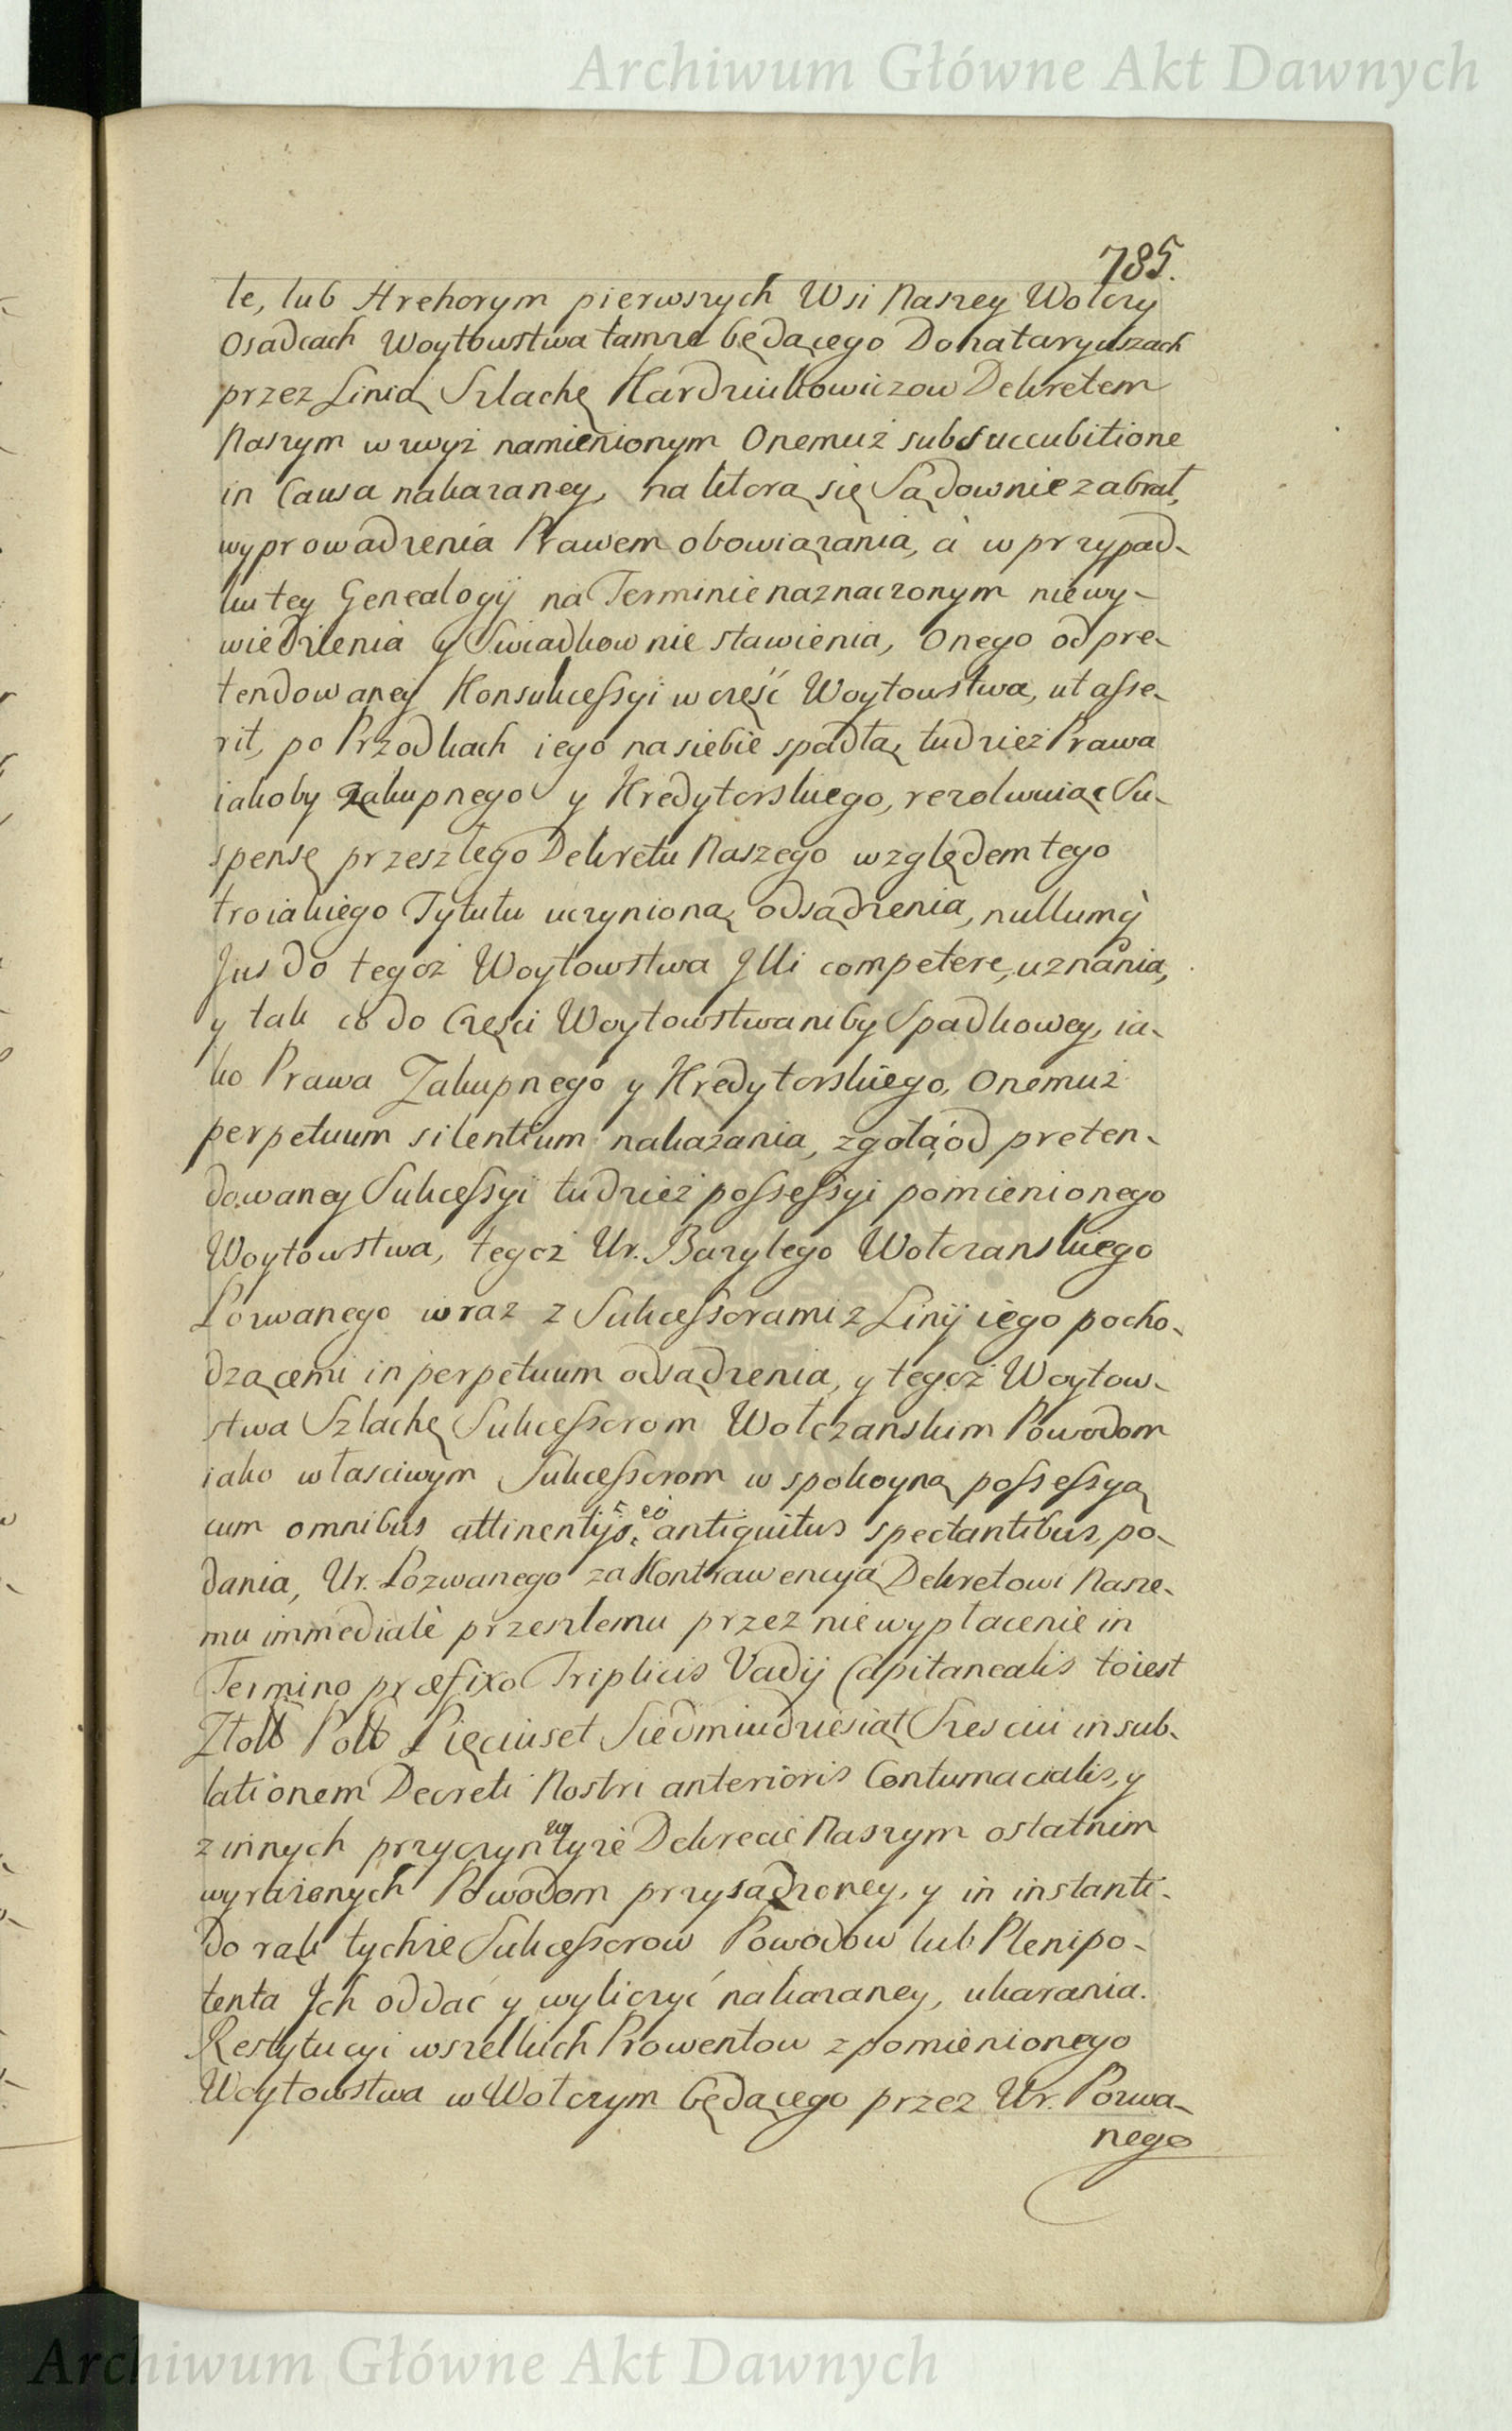 Archiwum Główne Akt Dawnych
785.
le, lub Hrehorym pierwszych Wsi Naszey Wołczy
Osadcach Woytowstwa tamże będącego Donataryuszach
przez Linią Szlachę Hardziukowiczow Dekretem
Naszym w wyż namienionym Onemuż sub succubitione
in Causa nakazaney, na ktorą się Sądownie zabrał,
wyprowadzenia Prawem obowiązania, à w przypad-
ku tey Genealogij na Terminie naznaczonym niewy-
wiedzenia y Swiadkow nie stawienia, Onego od pre-
tendowaney Konsukcessyi w część Woytowstwa, ut asse-
rit, po Przodkach iego na siebie spadłą, tudzież Prawa
iakoby Zakupnego y Kredytorskiego, rezolwuiąc Su-
spensę przeszłego Dekretu Naszego względem tego
troiakiego Tytułu uczynioną, odsądzenia, nullumq́
Jus do tegoż Woytowstwa Illi competere, uznania,
y tak co do Częsci Woytowstwa niby Spadkowey, ia-
ko Prawa Zakupnego y Kredytorskiego, Onemuż
perpetuum silentium nakazania, zgoła, od preten-
dowaney Sukcessyi tudzież possessyi pomienionego
Woytowstwa, tegoż Ur. Bazylego Wołczanskiego
Pozwanego wraz z Sukcessorami z Linij iego pocho-
dzącemi in perpetuum odsądzenia, y tegoż Woytow-
stwa Szlachę Sukcessorom Wołczanskim Powodom
iako własciwym Sukcessorom w spokoyną possessyą
cum omnibus attinentijs, eò antiquitus spectantibus, po-
dania, Ur. Pozwanego za Kontrawencyą Dekretowi Nasze-
mu immediatè przeszłemu przez niewypłacenie in
Termino præfixo Triplicis Vadij Capitanealis toiest
Złott Polł Pięciuset Siedmiudziesiąt Szesciu in sub-
lationem Decreti Nostri anterioris Contumacialis, y
z innych przyczyn w tyże Dekrecie Naszym ostatnim
wyrażonych Powodom przysądzoney, y in instanti
do rąk tychże Sukcessorow Powodow lub Plenipo-
tenta Jch oddać y wyliczyć nakazaney, ukarania.
Restytucyi wszelkich Prowentow z pomienionego
Woytowstwa w Wołczym będącego przez Ur. Pozwa-
nego
Archiwum Główne Akt Dawnych